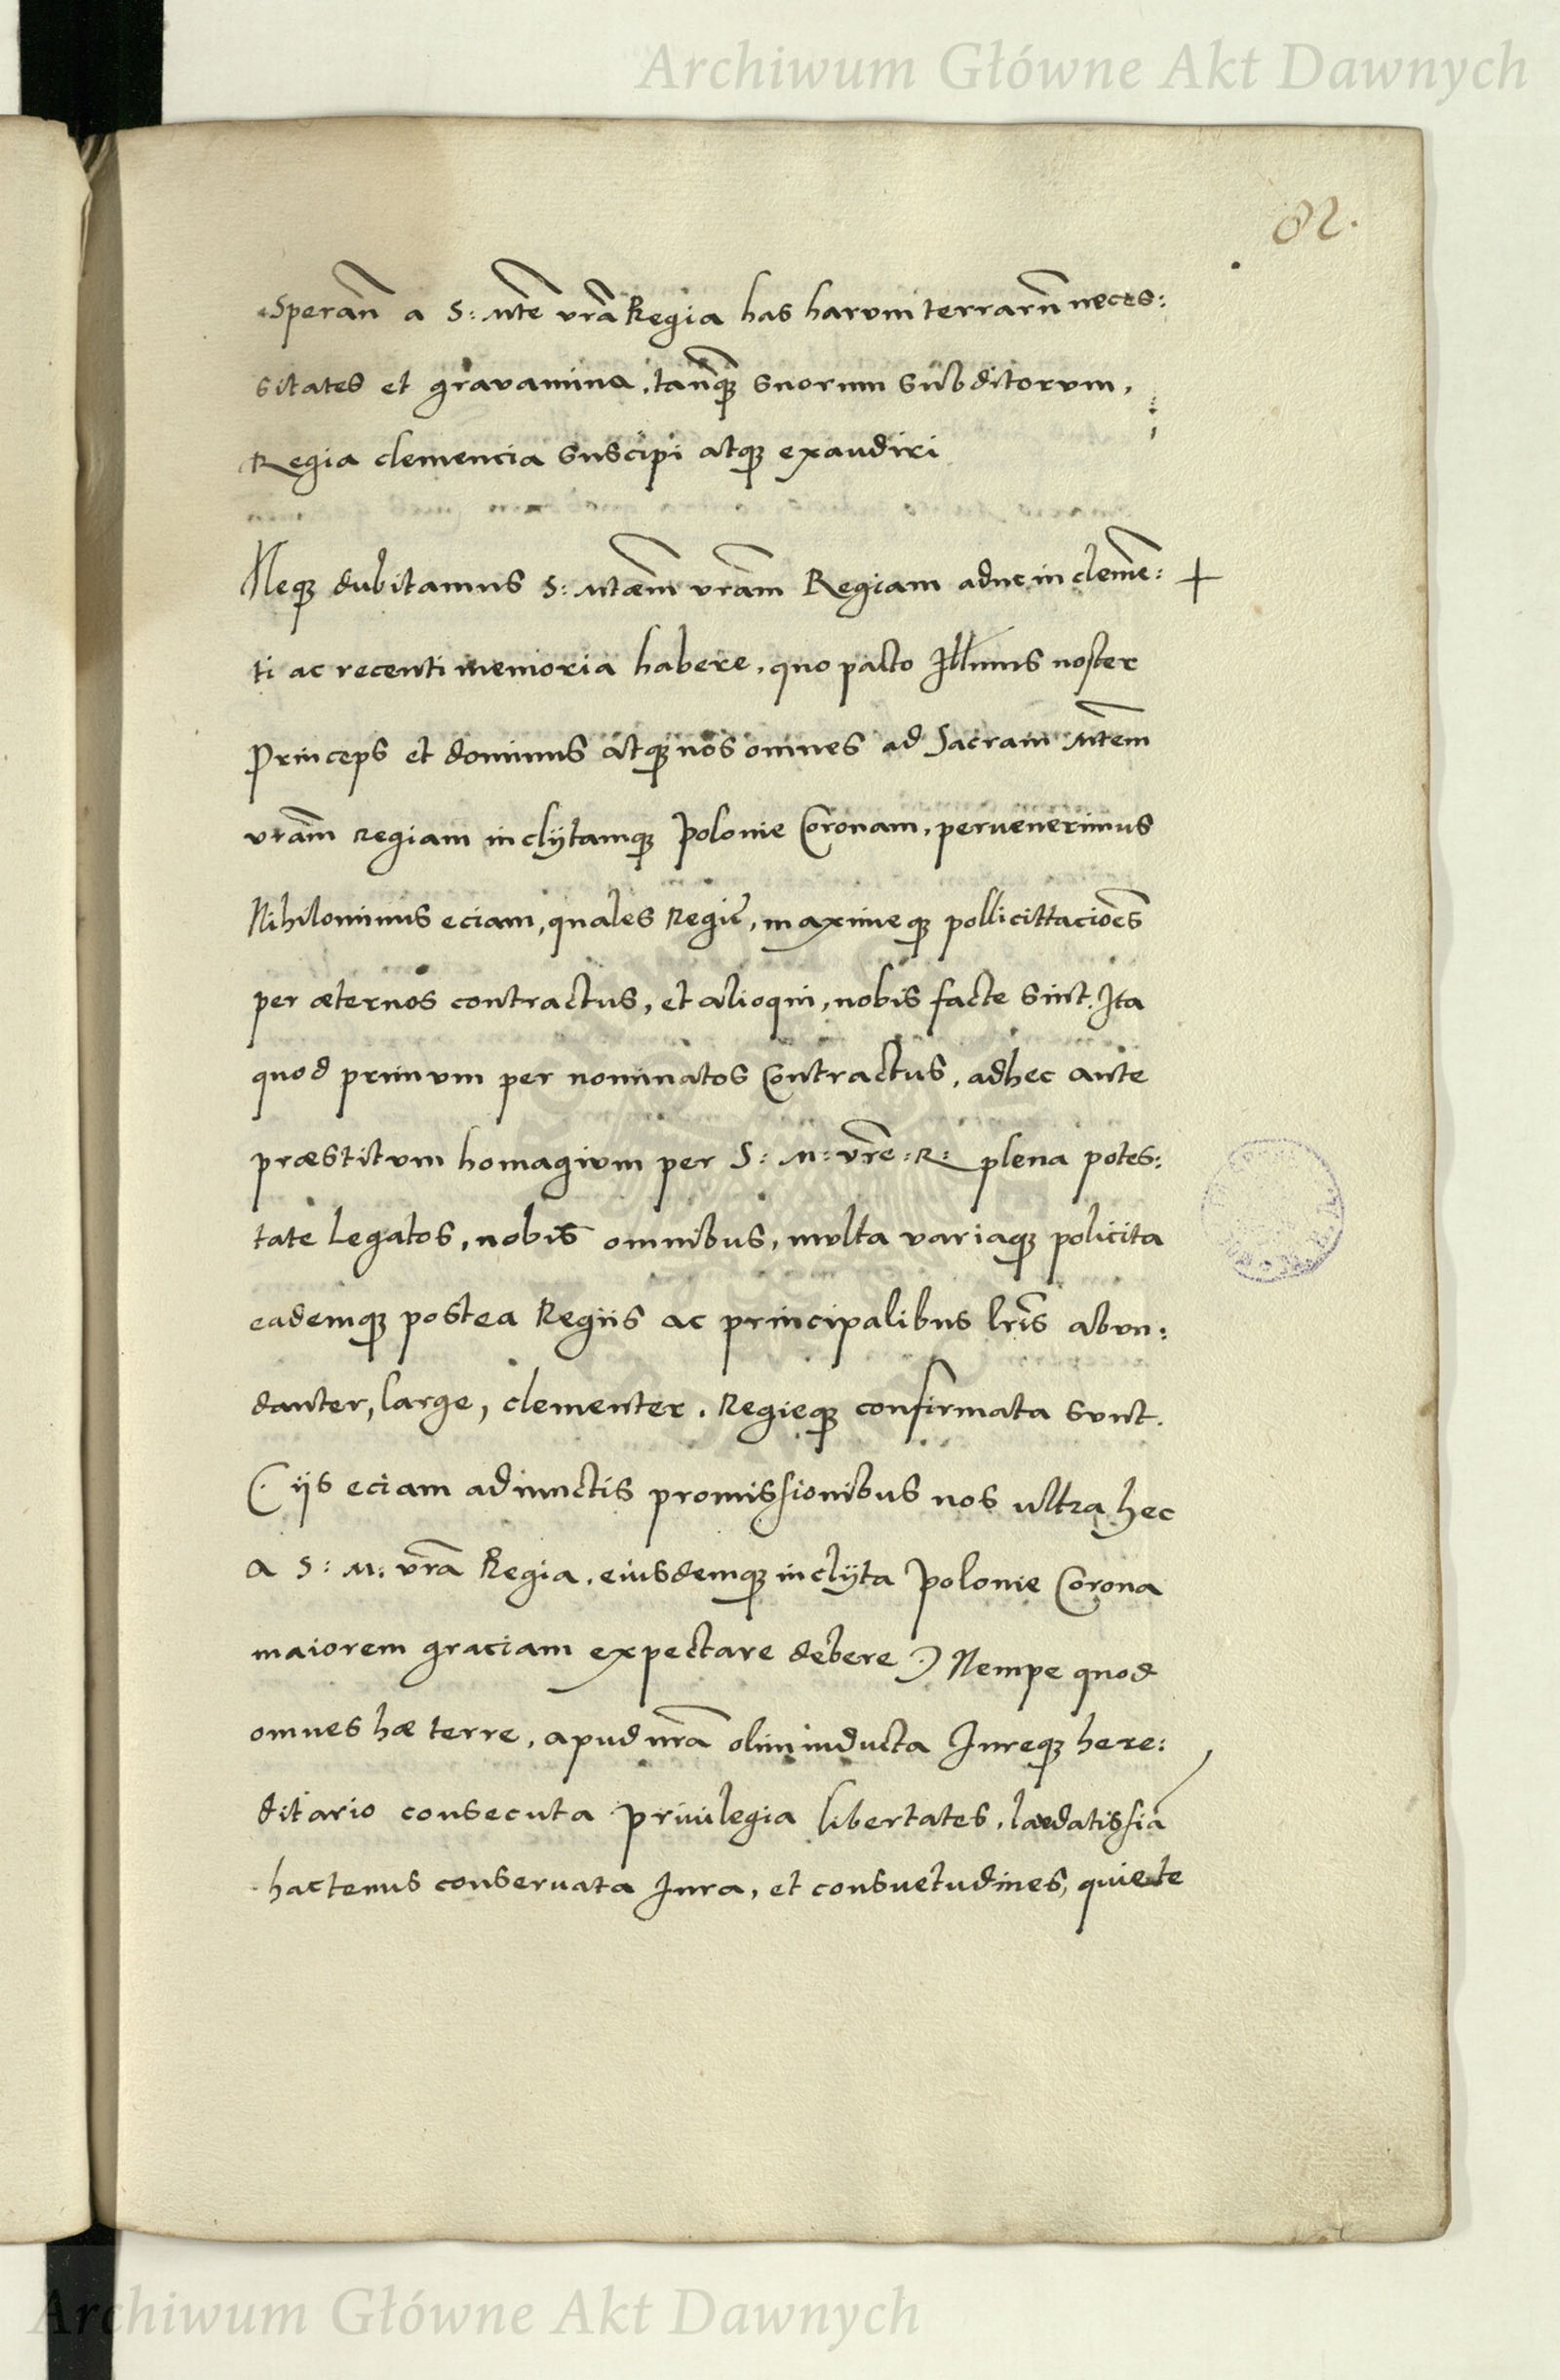 Archiwum Główne Akt Dawnych
82.
Sperañ a S: Mte vrã Regia has harum terrarũ neces:
sitates et gravamina, tanqꝫ suorum subditorum,
Regia clemencia suscipi atqꝫ exaudiri
Neqꝫ dubitamus S: Mtæm vram̃ Regiam adhuc in cleme: +
ti ac recenti memoria habere, quo pacto Illmus noster
Princeps et dominus atqꝫ nos omnes ad Sacram Mtem
vram̃ regiam inclÿtamqꝫ Polonie Coronam, pervenerimus
Nihilominus eciam, quales Regiẽ, maximeqꝫ pollicittacioẽs
per æternos contractus, et alioqui, nobis facte sint. Ita
quod primum per nominatos Contractus, adhec ante
præstitum homagium per S: M: vrẽ: R: plena potes:
tate Legatos, nobis omnibus, multa variaqꝫ policita
eademqꝫ postea Regiis ac principalibus lrĩs abun:
danter, large, clementer, Regieqꝫ confirmata sunt.
(· iis eciam adiunctis promissionibus nos ultra hec
a S: M: vrã Regia, eiusdemqꝫ inclÿta Polonie Corona
maiorem graciam expectare debere ·) Nempe quod
omnes hæ terre, apud nrã olim inducta Iureqꝫ here:
ditario consecuta privilegia libertates, laudatissiã
hactenus conservata Iura, et consuetudines, quiete
Archiwum Główne Akt Dawnych